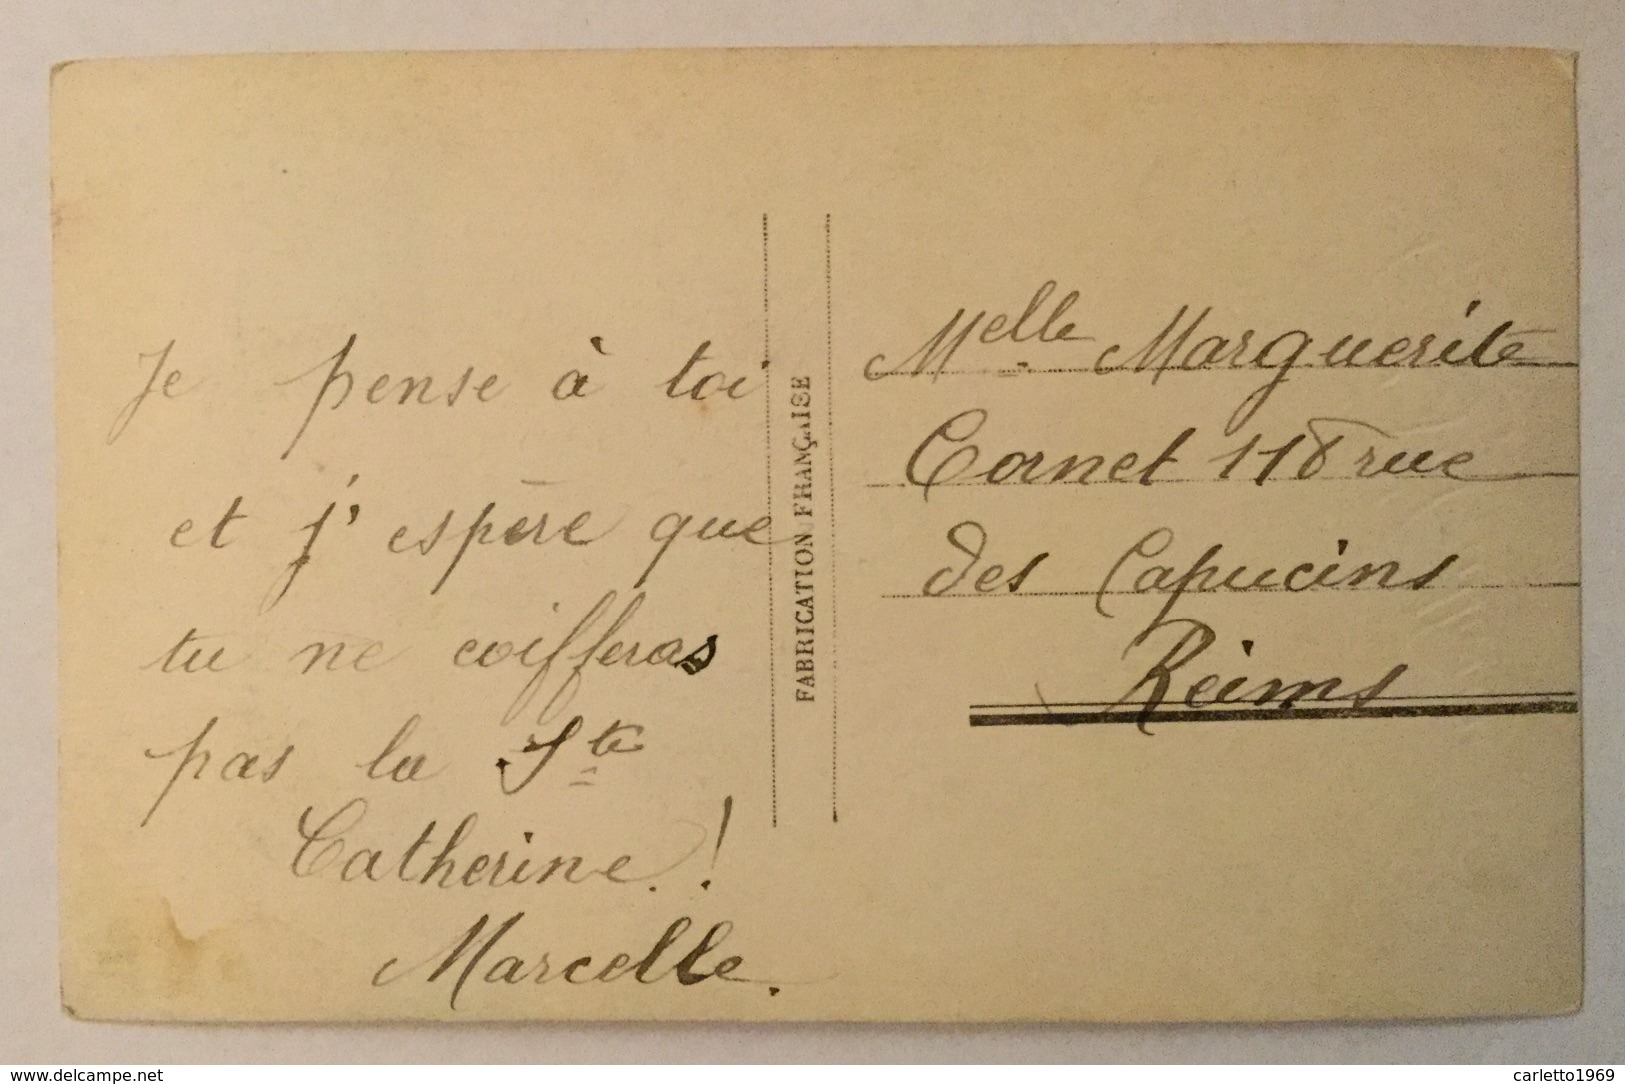 Je pense à toi
et j'espère que
tu ne coifferas
pas la Ste
Catherine !
Marcelle.
FABRICATION FRANÇAISE
Melle Marguerite
Cornet 118 rue
des Capucins
Reims
www.delcampe.net
carletto1969